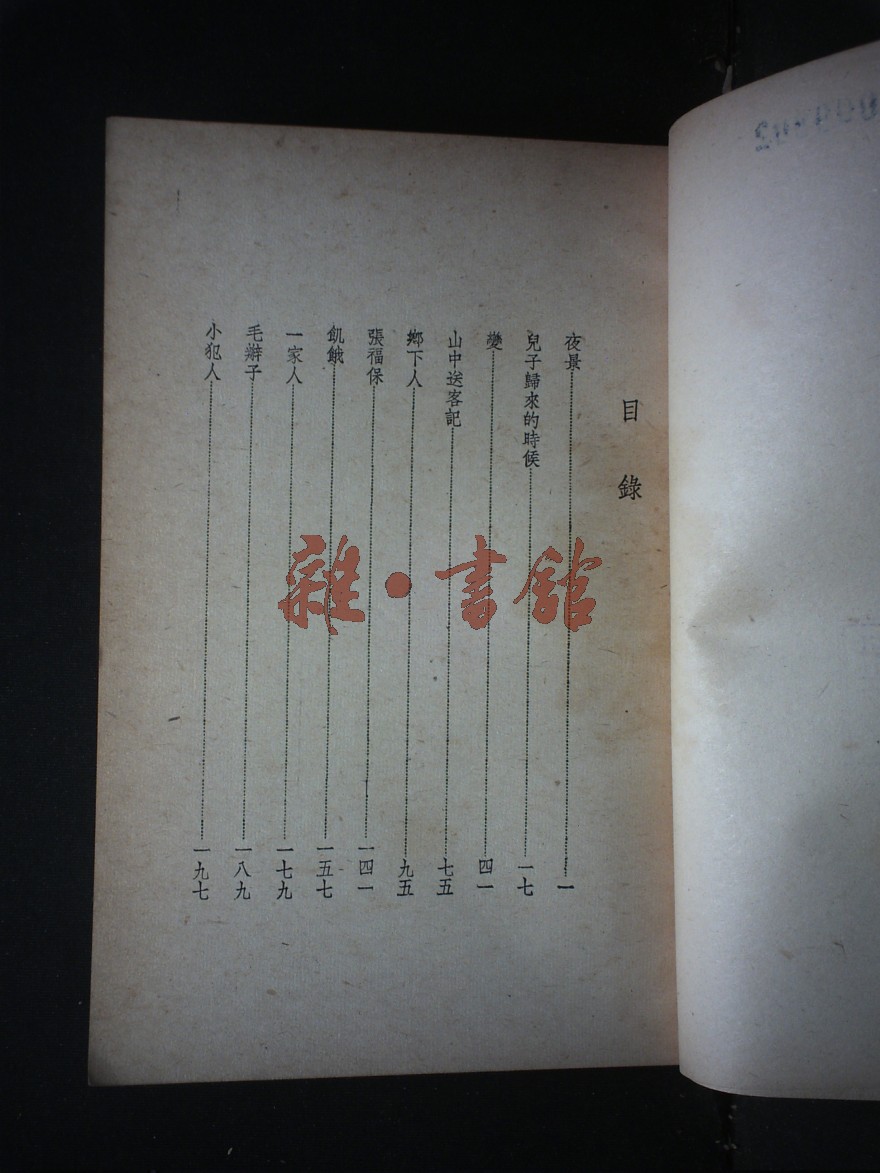 目錄
夜景……一
兒子歸來的時候……一七
變……四一
山中送客記……七五
鄉下人……九五
張福保……一四一
飢餓……一五七
一家人……一七九
毛辮子……一八九
小犯人……一九七
雜·書館